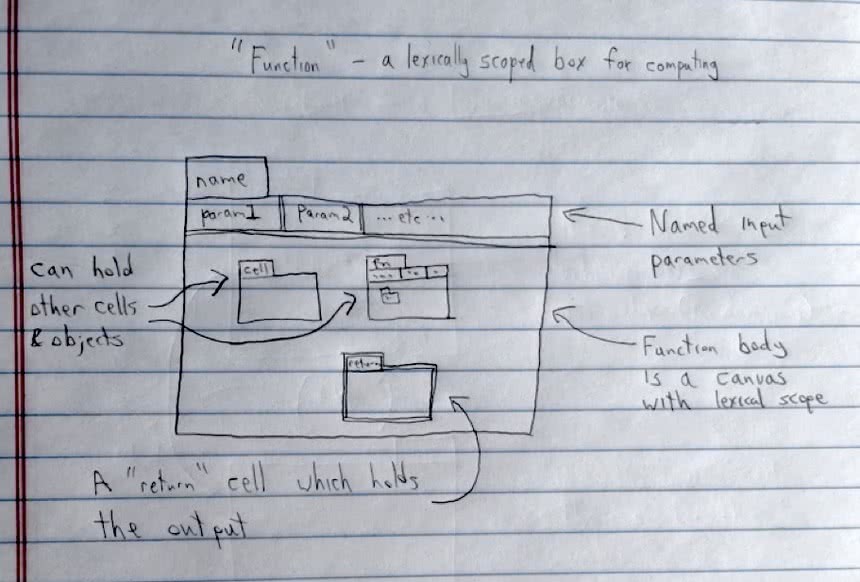 "Function" - a lexically scoped box for computing
name
param1 Param2 ... etc ...
Named input
parameters
can hold
other cells
& objects
cell
fn
return
Function body
is a canvas
with lexical scope
A "return" cell which holds
the output